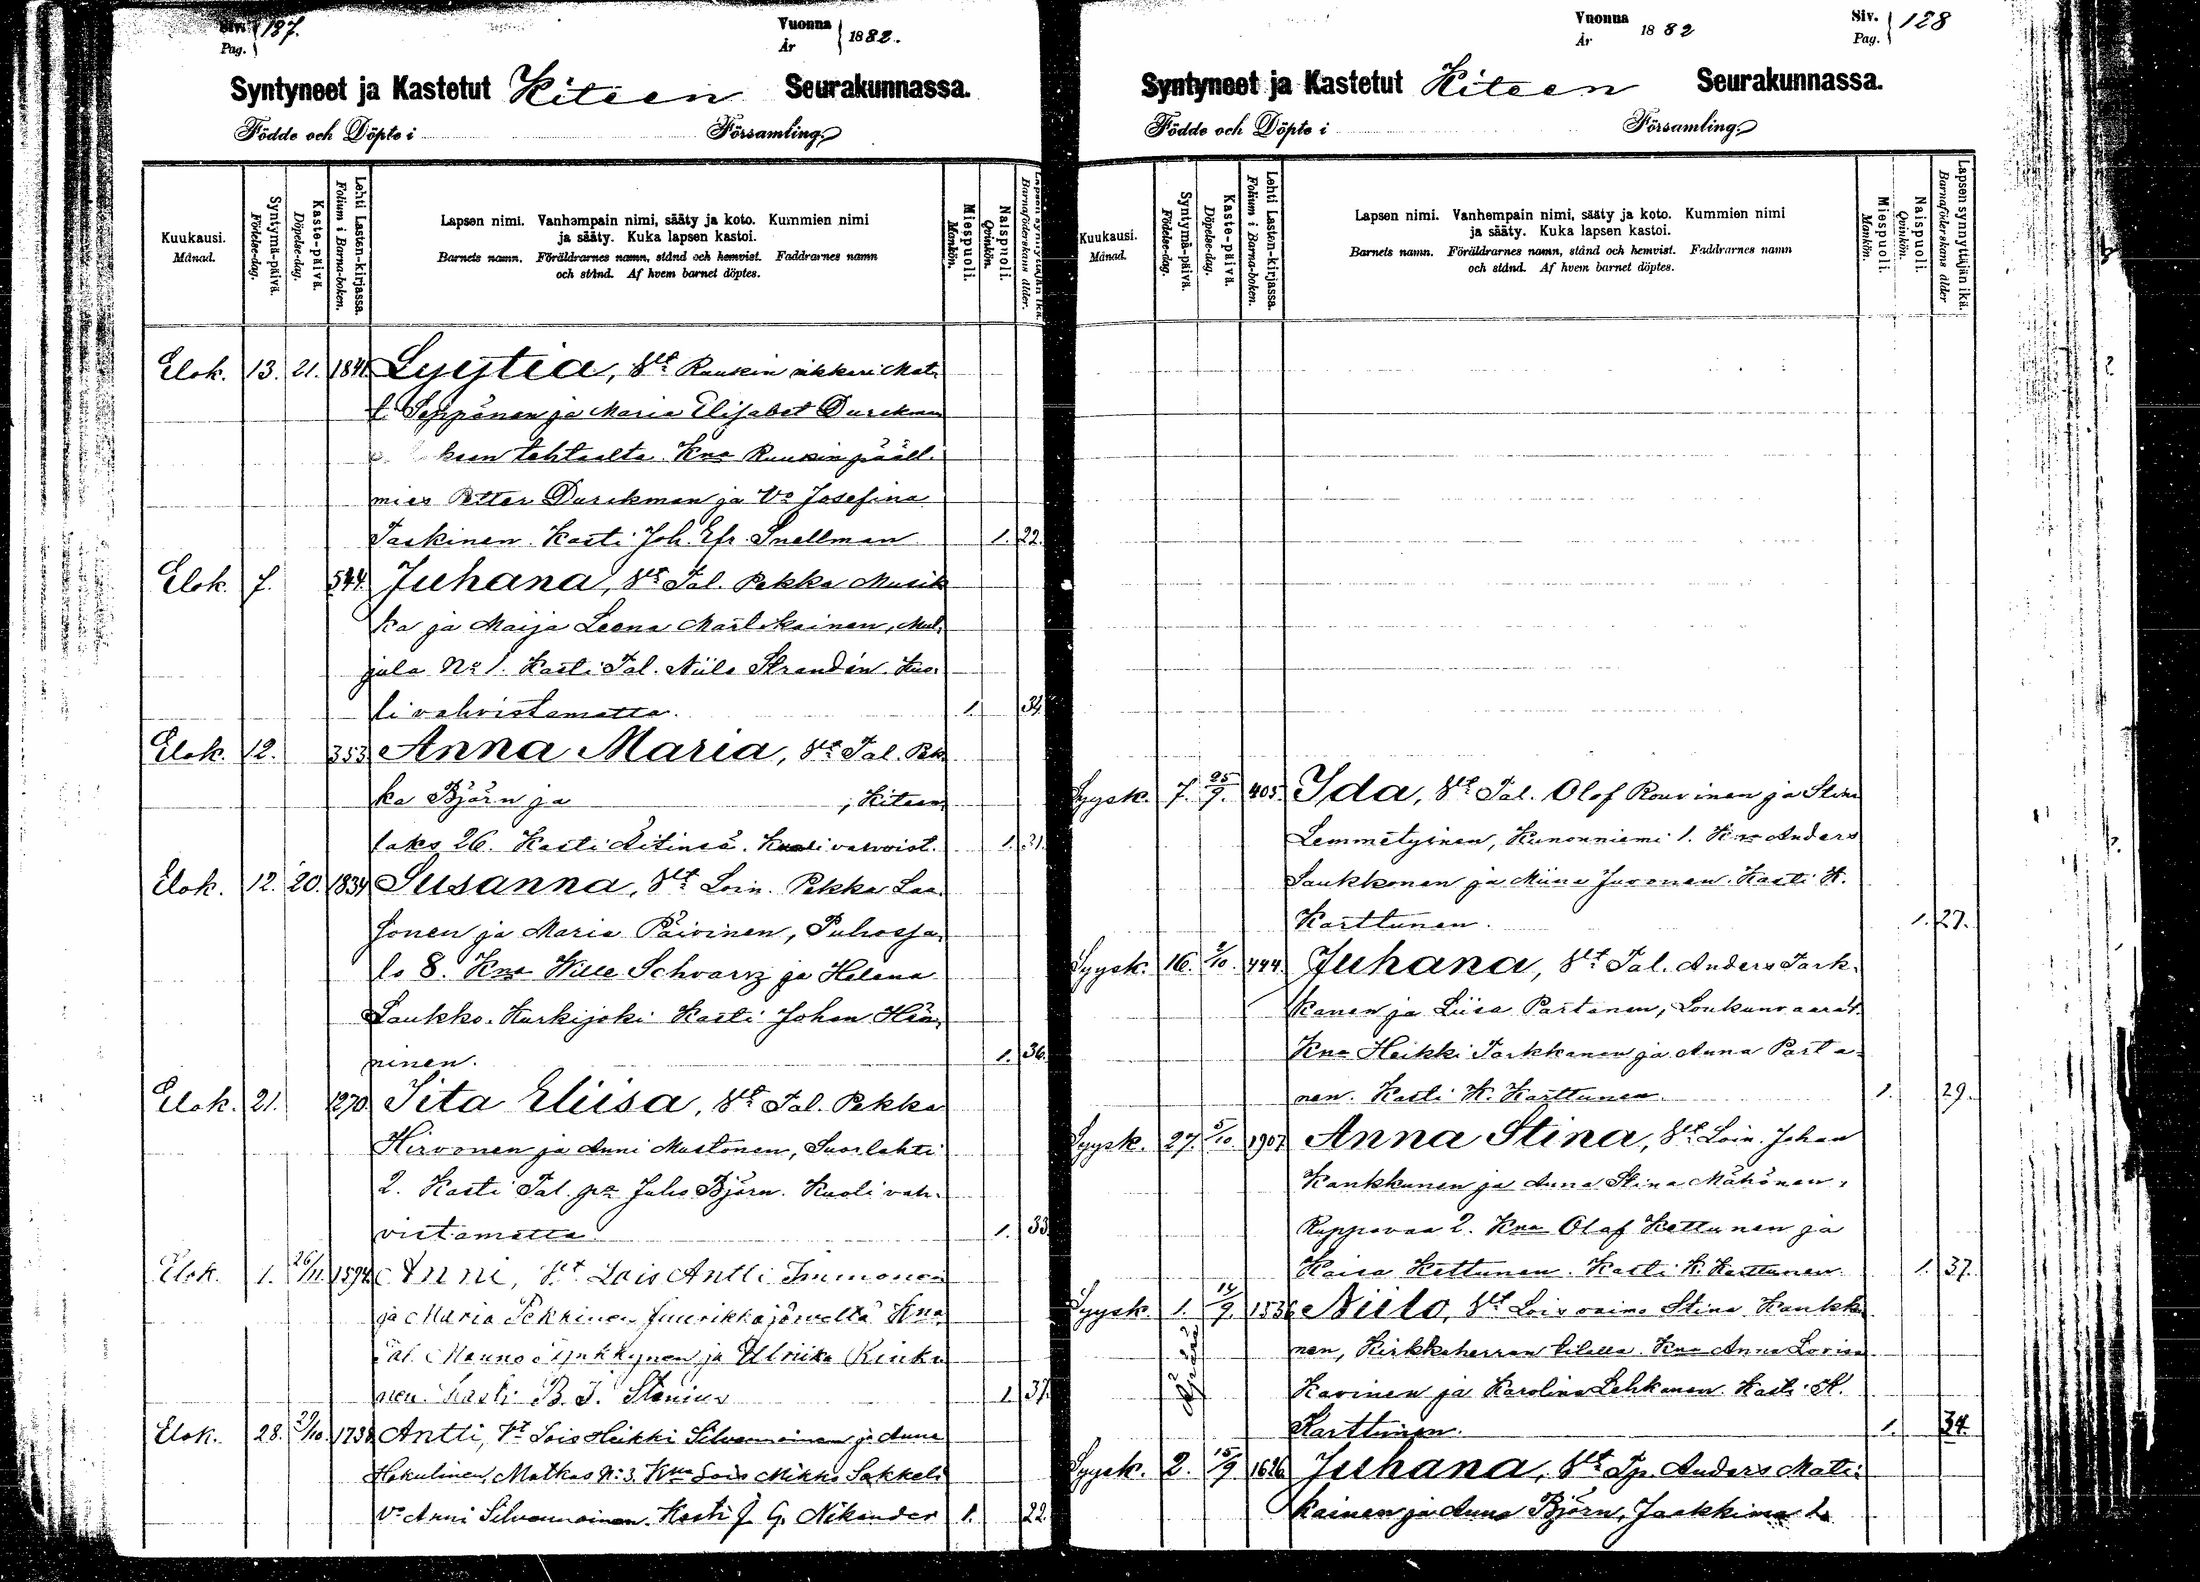 Siv. 127.
Pag.
Vuonna 1882.
År
Syntyneet ja Kastetut Kiteen Seurakunnassa.
Födde och Döpte i Församling.
Kuukausi. Månad.
Syntymä-päivä. Födelse-dag.
Kaste-päivä. Döpelse-dag.
Lehti Lasten-kirjassa. Folium i Barna-boken.
Lapsen nimi. Vanhempain nimi, sääty ja koto. Kummien nimi
ja sääty. Kuka lapsen kastoi.
Barnets namn. Föräldrarnes namn, stånd och hemvist. Faddrarnes namn
och stånd. Af hvem barnet döptes.
Miespuoli. Mankön.
Naispuoli. Qvinkön.
Lapsen synnyttäjän ikä. Barnaföderskans ålder.
Elok. 13. 21. 1841. Lyytia, Vt Ruukin nikkari Mat-
t. Seppänen ja Maria Elisabet Durckman
tehtaalta. Kna Ruukin pääll.
mies Petter Durckman ja Vo Josefina
Taskinen. Kasti Joh. Efr. Snellman 1. 22.
Elok. 7. 544. Juhana, Vt Tal. Pekka Musik
ka ja Maija Leena Matskainen, Mul-
jula No 1. Kasti Tal. Niilo Strandén. Kuo-
li vahvistamatta. 1. 34.
Elok. 12. 353. Anna Maria, Vt Tal. Pek
ka Björn ja , Kiteen
laks 26. Kasti Äitinsä. Kuoli vahvist. 1. 31.
Elok. 12. 20. 1834. Susanna, Vt Loin. Pekka Laa-
sonen ja Maria Päivinen, Puhossa-
lo 8. Kna Wille Schvarz ja Helena
Laukko. Kurkijoki Kasti Johan Hän-
ninen. 1. 36.
Elok. 21. 1270. Iita Eliisa, Vt Tal. Pekka
Hirvonen ja Anni Mustonen, Suorlahti
2. Kasti Tal. pa Juho Björn. Kuoli vah-
vistamatta 1. 33.
Elok. 1. 26/11. 1594. Anni, Vt Lois Antti Immonen
ja Maria Pekkinen Juurikkajärveltä Kna
Tal. Mauno ja Ulriika Kinku
nen. Kasti B. J. Stenius 1. 37.
Elok. 28. 29/10. 1738. Antti, Vt Lois Heikki Silvennoinen ja Anna
Hakulinen, Matkas N:3. Kna Lois Mikko Sakkeli
Vo Anni Silvennoinen. Kasti J. G. Nikander 1. 22.
Vuonna 1882
År
Siv. 128
Pag.
Syntyneet ja Kastetut Kiteen Seurakunnassa.
Födde och Döpte i Församling.
Kuukausi. Månad.
Syntymä-päivä. Födelse-dag.
Kaste-päivä. Döpelse-dag.
Lehti Lasten-kirjassa. Folium i Barna-boken.
Lapsen nimi. Vanhempain nimi, sääty ja koto. Kummien nimi
ja sääty. Kuka lapsen kastoi.
Barnets namn. Föräldrarnes namn, stånd och hemvist. Faddrarnes namn
och stånd. Af hvem barnet döptes.
Miespuoli. Mankön.
Naispuoli. Qvinkön.
Lapsen synnyttäjän ikä. Barnaföderskans ålder
Syysk. 7. 25/9. 405. Ida, Vt Tal. Olof Rouvinen ja Stina
Lemmetyinen, Kunonniemi 1. Kna Anders
Saukkonen ja Miina Juvonen. Kasti K.
Karttunen. 1. 27.
Syysk. 16. 2/10. 444. Juhana, Vt Tal. Anders Tark-
kanen ja Liisa Partanen, Loukunvaara 1.
Kna Heikki Tarkkanen ja Anna Parta-
nen. Kasti K. Karttunen 1. 29.
Syysk. 27. 5/10. 1907. Anna Stina, Vt Loin. Johan
Kankkunen ja Anna Stina Mähönen,
Ruppovaa 2. Kna Olof Kettunen ja
Kaisa Kettunen. Kasti K. Karttunen. 1. 37.
Syysk. 1. 14/9. 1536 Niilo, Vt Lois vaimo Stina Kankku
nen, Kirkkoherran tilalla. Kna Anna Lovisa
Kavinen ja Karolina Lehkonen. Kasti K.
Karttunen. 1. 34.
Syysk. 2. 15/9 1626. Juhana, Vt Tp. Anders Mati-
kainen ja Anna Björn, Jaakkima